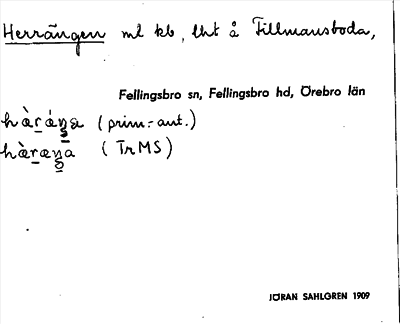 Herrängen ml kb, lht å Tillmansboda,
Fellingsbro sn, Fellingsbro hd, Örebro län
(prim.-ant.)
(Tr MS)
JÖRAN SAHLGREN 1909